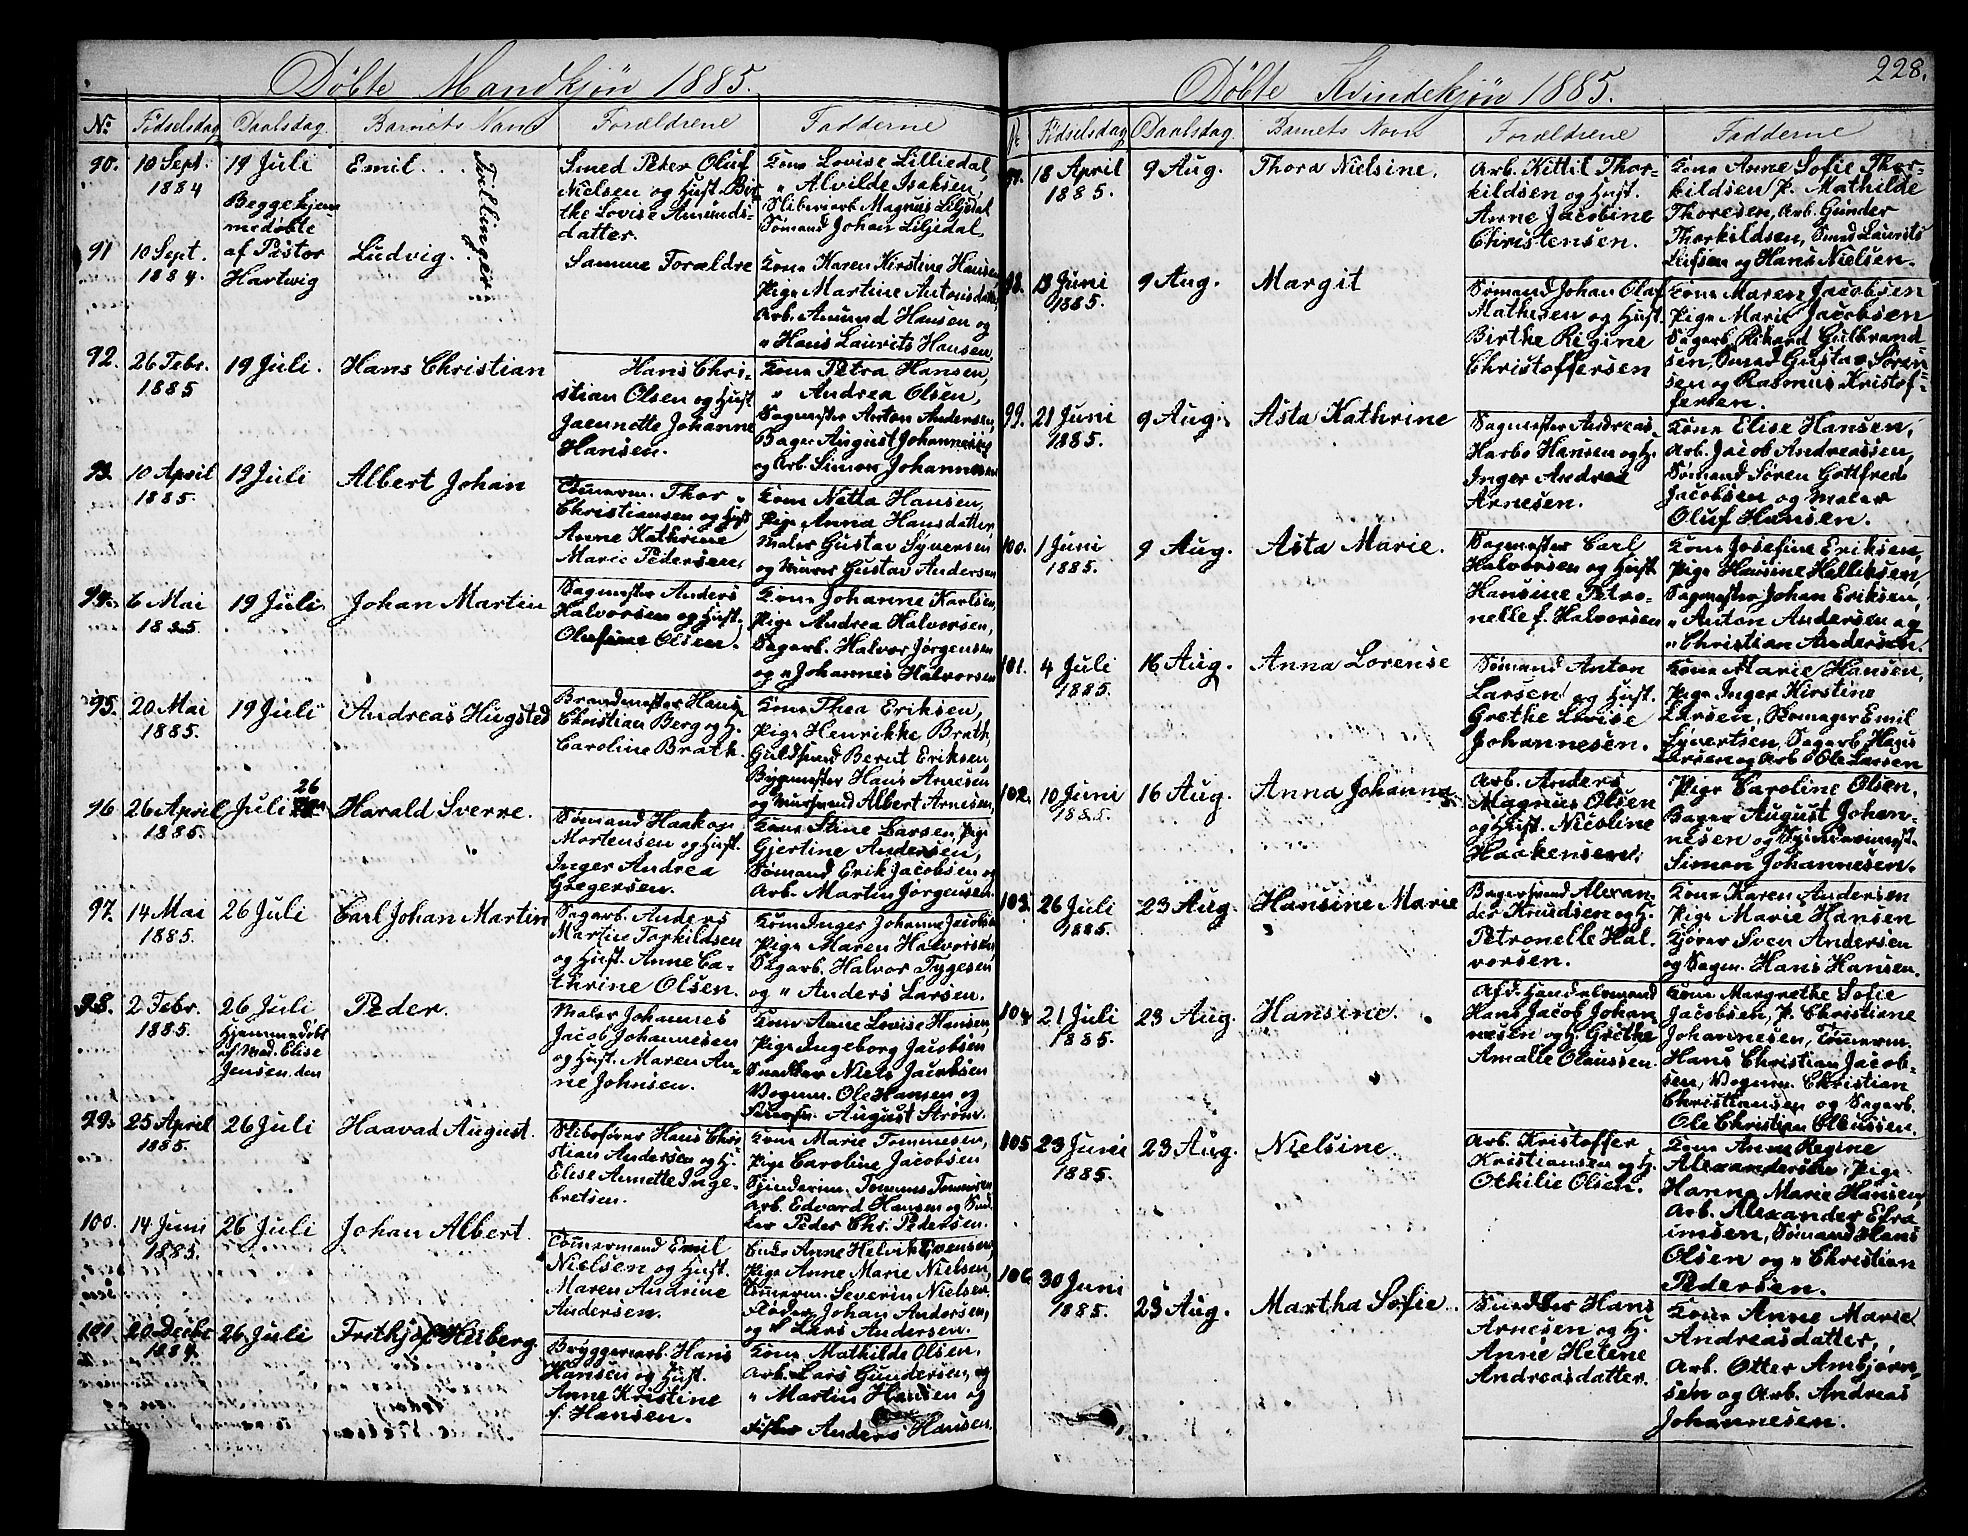 228.
Döbte Mandkjøn 1885.
No Födselsdag Daabsdag. Barnets Navn Forældrene Fadderne
90. 10 Sept. 1884 19 Juli Emil
Begge hjem-
medøbte
af Pastor
Hartvig
Tvillinger
Smed Peter Oluf
Nielsen og Hust. Bir-
the Lovise Amunds-
datter.
Kone Lovise Lilliedal,
" Alvilde Isaksen,
Sliberiarb Magnus Liljedal
Sømand Johan Liljedal
91 10 Sept. 1884. Ludvig.
Samme Forældre
Kone Karen Kirstine Hansen
Pige Martine Antonsdatter,
Arb. Amund Hansen og
" Hans Laurits Hansen,
92. 26 Febr. 1885 19 Juli. Hans Christian
Hans Chri-
stian Olsen og Hust
Jaennette Johanne
Hansen.
Kone Petra Hansen,
" Andrea Olsen,
Sagmester Anton Andersen,
Bager August Johannesen
og Arb. Simon Johannesen
93. 10 April 1885. 19 Juli Albert Johan
Tömmerm. Thor
Christiansen og Hust
Anne Kathrine
Marie Pedersen,
Kone Netta Hansen,
Pige Anna Hansdatter,
Maler Gustav Syversen
og Murer Gustav Andersen
94. 6 Mai 1885 19 Juli Johan Martin
Sagmester Anders
Halvorsen og Hust.
Olufine Olsen.
Kone Johanne Karlsen,
Pige Andrea Halvorsen,
Sagarb. Halvor Jørgensen
og " Johannes Halvorsen
95. 20 Mai 1885. 19 Juli Andreas Hugsted
Brandmester Hans
Christian Berg og H.
Caroline Brath.
Kone Thea Eriksen,
Pige Henrikke Brath,
Guldsmed Bernt Eriksen,
Bygmester Hans Arnesen
og Mursvend Albert Arnesen,
96 26 April 1885. Juli 26 Harald Sverre.
Sømand Haakon
Mortensen og Hust.
Inger Andrea
Gregersen.
Kone Stine Larsen, Pige
Gjertine Andersen,
Sømand Erik Jacobsen og
Arb. Martin Jørgensen.
97. 14 Mai 1885. 26 Juli Carl Johan Martin
Sagarb. Anders
Martin Torkildsen
og Hust. Anne Ca-
thrine Olsen.
Kone Inger Johanne Jacobsen
Pige Maren Halvorsen
Sagarb. Halvor Tygesen
og " Anders Larsen.
98. 2 Febr. 1885. 26 Juli Peder.
Hjemmedøbt
af Mad. Elise
Jensen den
Maler Johannes
Jacob Johannesen
og Hust. Maren An-
ne Johnsen.
Kone Anne Lovise Hansen
Pige Ingeborg Jacobsen
Snedker Niels Jacobsen
Vognm. Ole Hansen og
August Strøm.
99. 25 April 1885. 26 Juli Haavad August.
Slibefører Hans Chri
stian Andersen og H.
Elise Annette Inge-
bretsen.
Kone Marie Tommesen,
Pige Caroline Jacobsen
Tommes Tommesen
Arb. Edvard Hansen og Sned-
ker Peder Chr. Pedersen.
100. 14 Juni 1885. 26 Juli Johan Albert.
Tömmermand Emil
Nielsen og Hust.
Maren Andrine
Andersen.
Enke Anne Helvik Evensen,
Pige Anne Marie Nielsen,
Tömmerm. Severin Nielsen
Fløder Johan Andersen,
og " Lars Andersen.
101. 20 Decbr 1884. 26 Juli Frithjof Heiberg
Bryggeriarb. Hans
Hansen og Hust.
Anne Kristine
f. Hansen.
Kone Mathilde Olsen.
Arb. Lars Gundersen, og
" Martin Hansen og
Fisker Anders Hansen.
Döbte Kvindekjøn 1885.
No Fødselsdag Daabsdag. Barnets Navn Forældrene Fadderne
97. 18 April 1885. 9 Aug. Thora Nielsine.
Arb. Kittil Thor-
kildsen og Hust.
Anne Jacobine
Christensen.
Kone Anne Sofie Thor-
kildsen, P. Mathilde
Thoresen, Arb. Gunder
Thorkildsen, Smed Laurits
og Hans Nielsen.
98. 13 Juni 1885. 9 Aug. Margit
Sømand Johan Olaf
Mathisen og Hust.
Birthe Regine
Christoffersen
Kone Maren Jacobsen
Pige Marie Jacobsen
Sagarb. Rikard Gulbrand-
sen, Smed Gustav Søren-
sen og Rasmus Kristof-
fersen.
99. 21 Juni 1885. 9 Aug. Asta Kathrine
Sagmester Andreas
Harbo Hansen og H.
Inger Andrea
Arnesen.
Kone Elise Hansen,
Arb. Jacob Andreassen,
Sømand Søren Gottfred
Jacobsen og Maler
Oluf Hansen.
100. 1 Juni 1885. 9 Aug. Asta Marie.
Sagmester Carl
Halvorsen og Hust
Hansine Petro-
nelle f. Halvorsen
Kone Josefine Eriksen,
Pige Hansine Helliksen,
Sagmester Johan Eriksen,
" Anton Andersen og
" Christian Andersen.
101. 4 Juli 1885. 16 Aug. Anna Lorense
Sømand Anton
Larsen og Hust.
Grethe Lovise
Johannesen.
Kone Marie Hansen,
Pige Inger Kirstine
Larsen, Skomager Emil
Syvertsen, Sagarb. Hans
Larsen og Arb. Ole Larsen
102. 10 Juni 1885. 16 Aug. Anna Johanna
Arb. Anders
Magnus Olsen
og Hust. Nicoline
Haakensen.
Pige Caroline Olsen,
Bager August Johan-
nesen og
Simon Johannesen.
103. 26 Juli 1885. 23 Aug. Hansine Marie
Bagersvend Alexan-
der Knudsen og H.
Petronelle Hal-
vorsen.
Kone Karen Andersen
Pige Marie Hansen
Kjører Sven Andersen
og Sagm. Hans Hansen.
104. 21 Juli 1885. 23 Aug. Hansine.
Afd. Handelsmand
Hans Jacob Johan
nesen og H. Grethe
Amalie Olaussen.
Kone Margrethe Sofie
Jacobsen, P. Christiane
Johannesen, Tömmerm.
Hans Christian Jacob-
sen, Vognm. Christian
Christiansen og Sagarb.
Ole Christian Olaussen.
105 23 Juni 1885. 23 Aug. Nielsine.
Arb. Kristoffer
Kristiansen og H.
Othilie Olsen.
Kone Anne Regine
Alexandersen, Pige
Hanna Marie Hansen,
Arb. Alexander Efra
imsen, Sømand Hans
Olsen og " Christian
Pedersen.
106. 30 Juni 1885. 23 Aug. Martha Sofie.
Snedker Hans
Arnesen og H.
Anne Helene
Andreasdatter.
Kone Anne Marie
Andreasdatter,
Arb. Otter Ambjørn-
sen og Arb. Andreas
Johannesen.